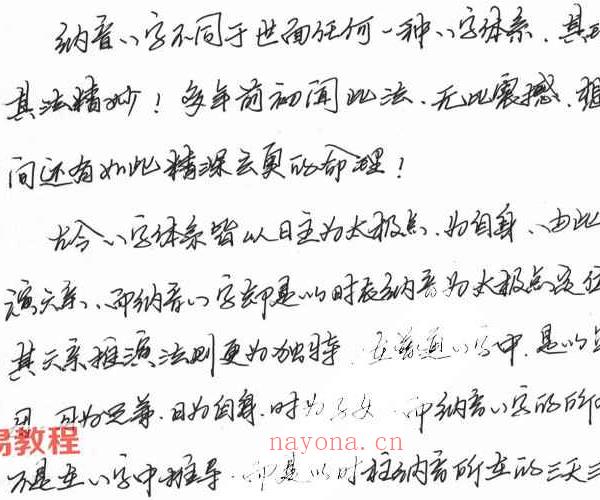 纳音八字不同于世面任何一种八字体系.其
其法精妙！多年前初闻此法.无比震撼.
间还有如此精深玄奥的命理！
古今八字体系皆以日主为太极点.为自身.由此
演关系.而纳音八字却是以时辰纳音为太极点定位
其关系推演法则更为独特.在普通八字中.是以
月为兄弟.日为自身.时为子女.而纳音八字的所
不是在八字中推导.却是以时柱纳音所在的三天
易教程
nayona.cn